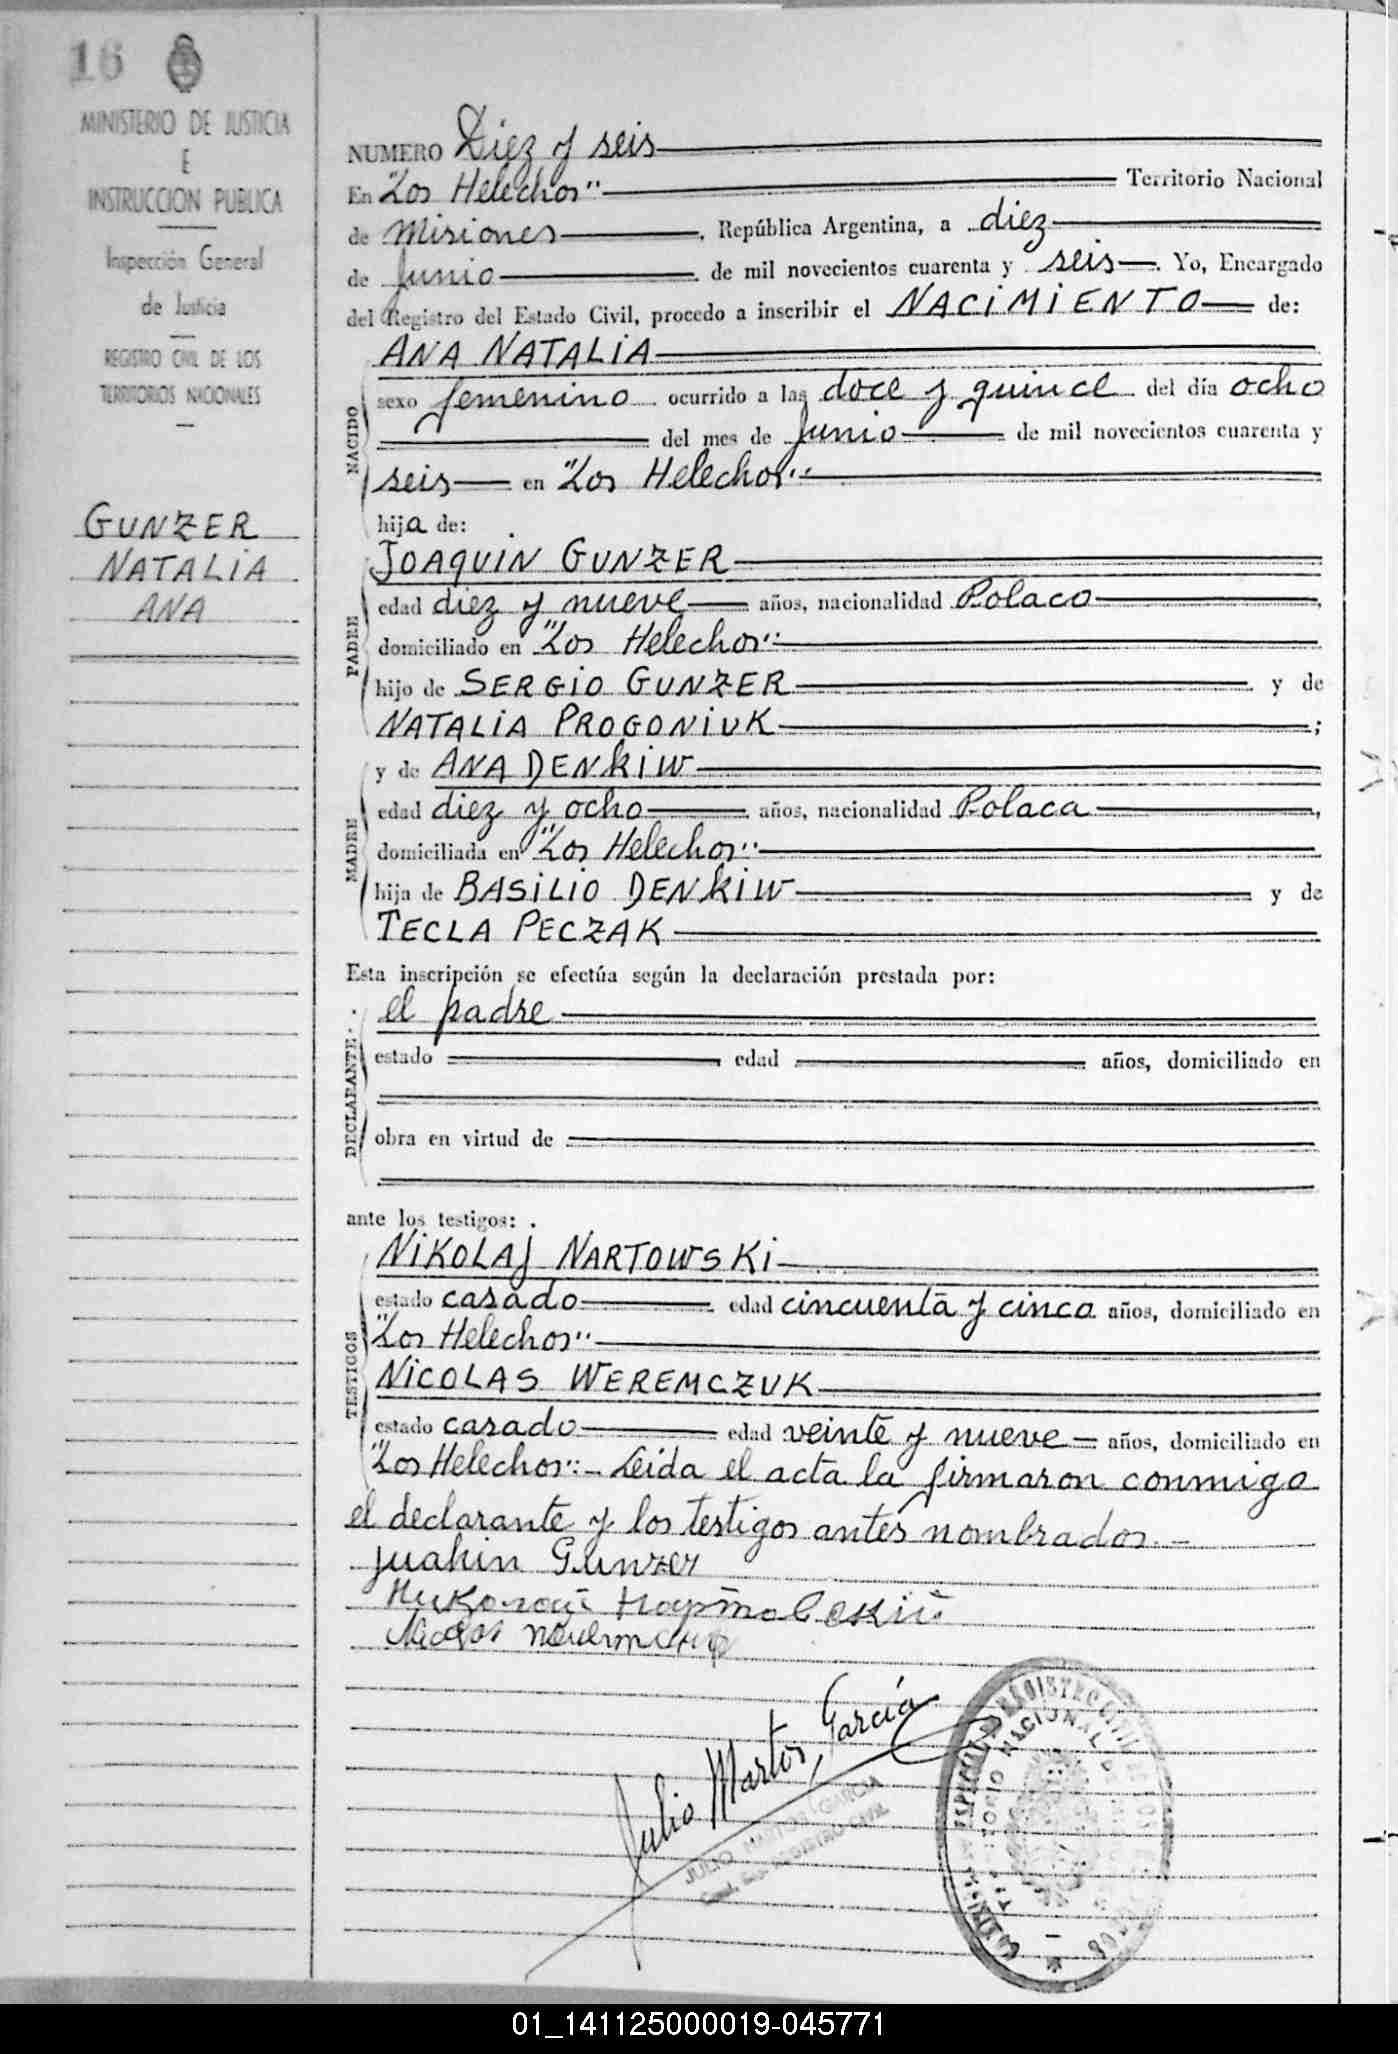 16
MINISTERIO DE JUSTICIA
E
INSTRUCCION PUBLICA
Inspección General
de Justicia
REGISTRO CIVIL DE LOS
TERRITORIOS NACIONALES
GUNZER
NATALIA
ANA
NUMERO Diez y seis
En "Los Helechos" Territorio Nacional
de Misiones, República Argentina, a diez
de Junio de mil novecientos cuarenta y seis. Yo, Encargado
del Registro del Estado Civil, procedo a inscribir el NACIMIENTO de:
ANA NATALIA
NACIDO
sexo femenino ocurrido a las doce y quince del día ocho
del mes de Junio de mil novecientos cuarenta y
seis en "Los Helechos"
hija de:
JOAQUIN GUNZER
PADRE
edad diez y nueve años, nacionalidad Polaco,
domiciliado en "Los Helechos"
hijo de SERGIO GUNZER y de
NATALIA PROGONIUK;
y de ANA DENKIW
MADRE
edad diez y ocho años, nacionalidad Polaca,
domiciliada en "Los Helechos"
hija de BASILIO DENKIW y de
TECLA PECZAK
Esta inscripción se efectúa según la declaración prestada por:
el padre
DECLARANTE
estado edad años, domiciliado en
obra en virtud de
ante los testigos:
NIKOLAJ NARTOWSKI
TESTIGOS
estado casado edad cincuenta y cinco años, domiciliado en
"Los Helechos"
NICOLAS WEREMCZUK
estado casado edad veinte y nueve años, domiciliado en
"Los Helechos".- Leida el acta la firmaron conmigo
el declarante y los testigos antes nombrados.-
Juahin Gunzer
Julio Martos García
JULIO MARTOS GARCIA
REGISTRO CIVIL
01_141125000019-045771